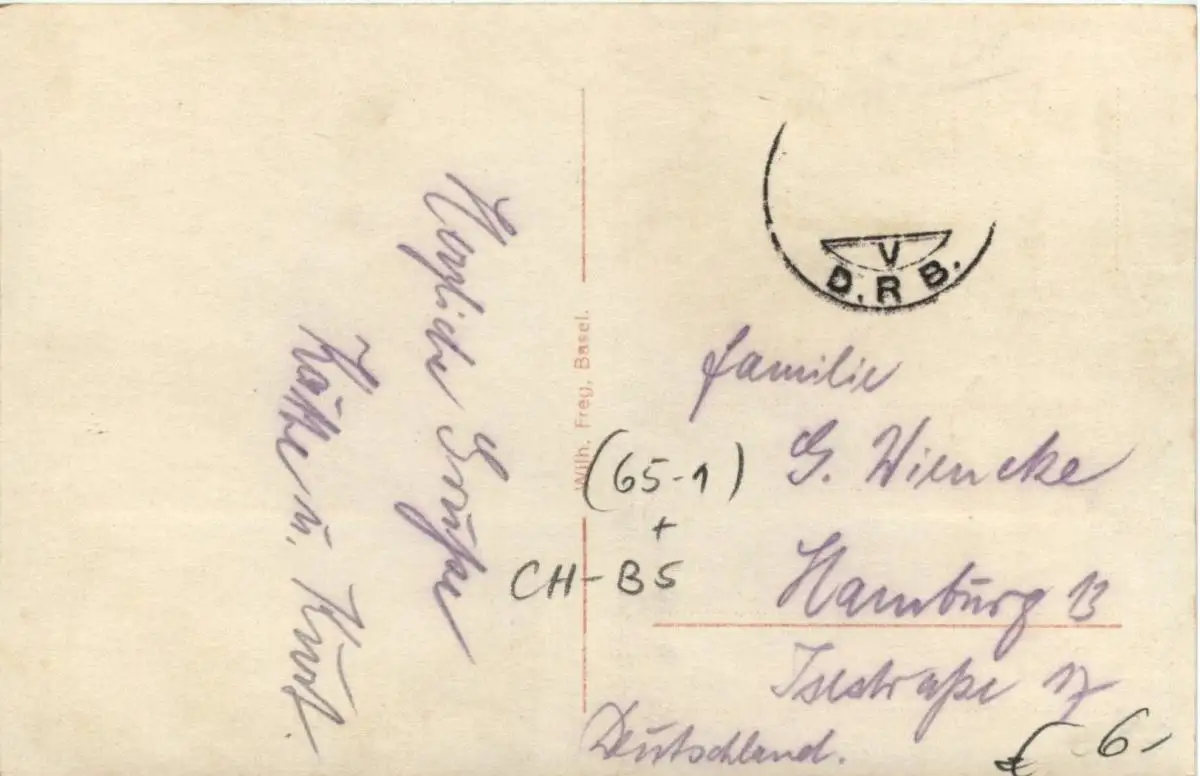 Herzliche Grüße
Käthe u. Kurt.
Wilh. Freg, Basel.
V
D.R.B.
Familie
G. Wiencke
Hamburg 13
Isestraße 17
Deutschland.
(65-1)
+
CH-BS
€ 6,-